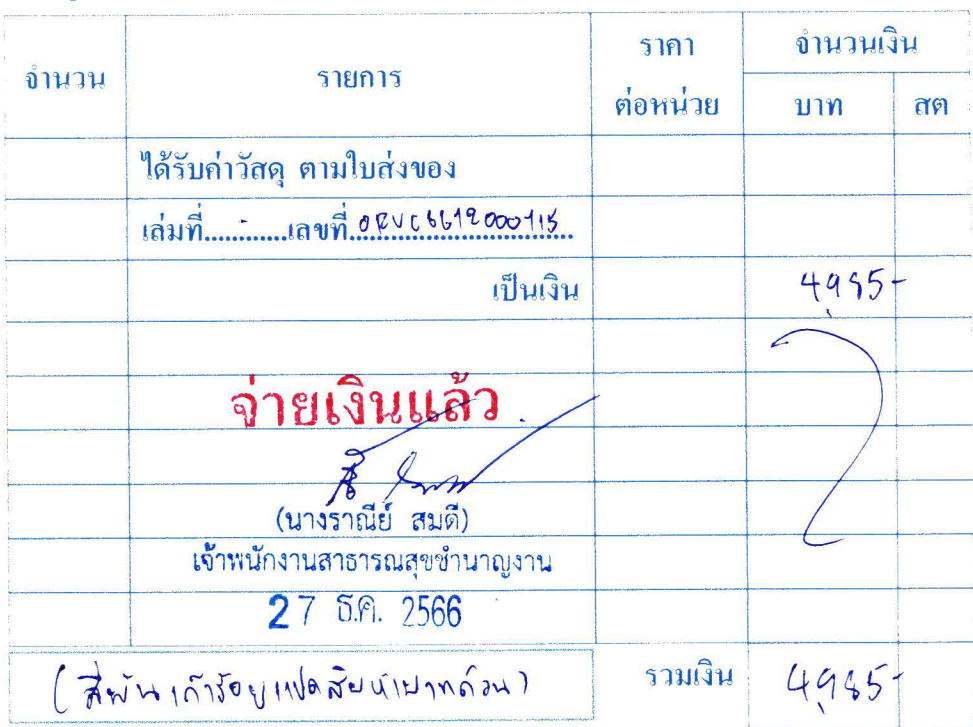 จำนวน รายการ ราคา ต่อหน่วย จำนวนเงิน
บาท สต
ได้รับค่าวัสดุ ตามใบส่งของ
เล่มที่......-......เลขที่ ORVC6612000115
เป็นเงิน 4,985-
จ่ายเงินแล้ว
(นางราณีย์ สมดี)
เจ้าพนักงานสาธารณสุขชำนาญงาน
27 ธ.ค. 2566
(สี่พันเก้าร้อยแปดสิบห้าบาทถ้วน) รวมเงิน 4,985-